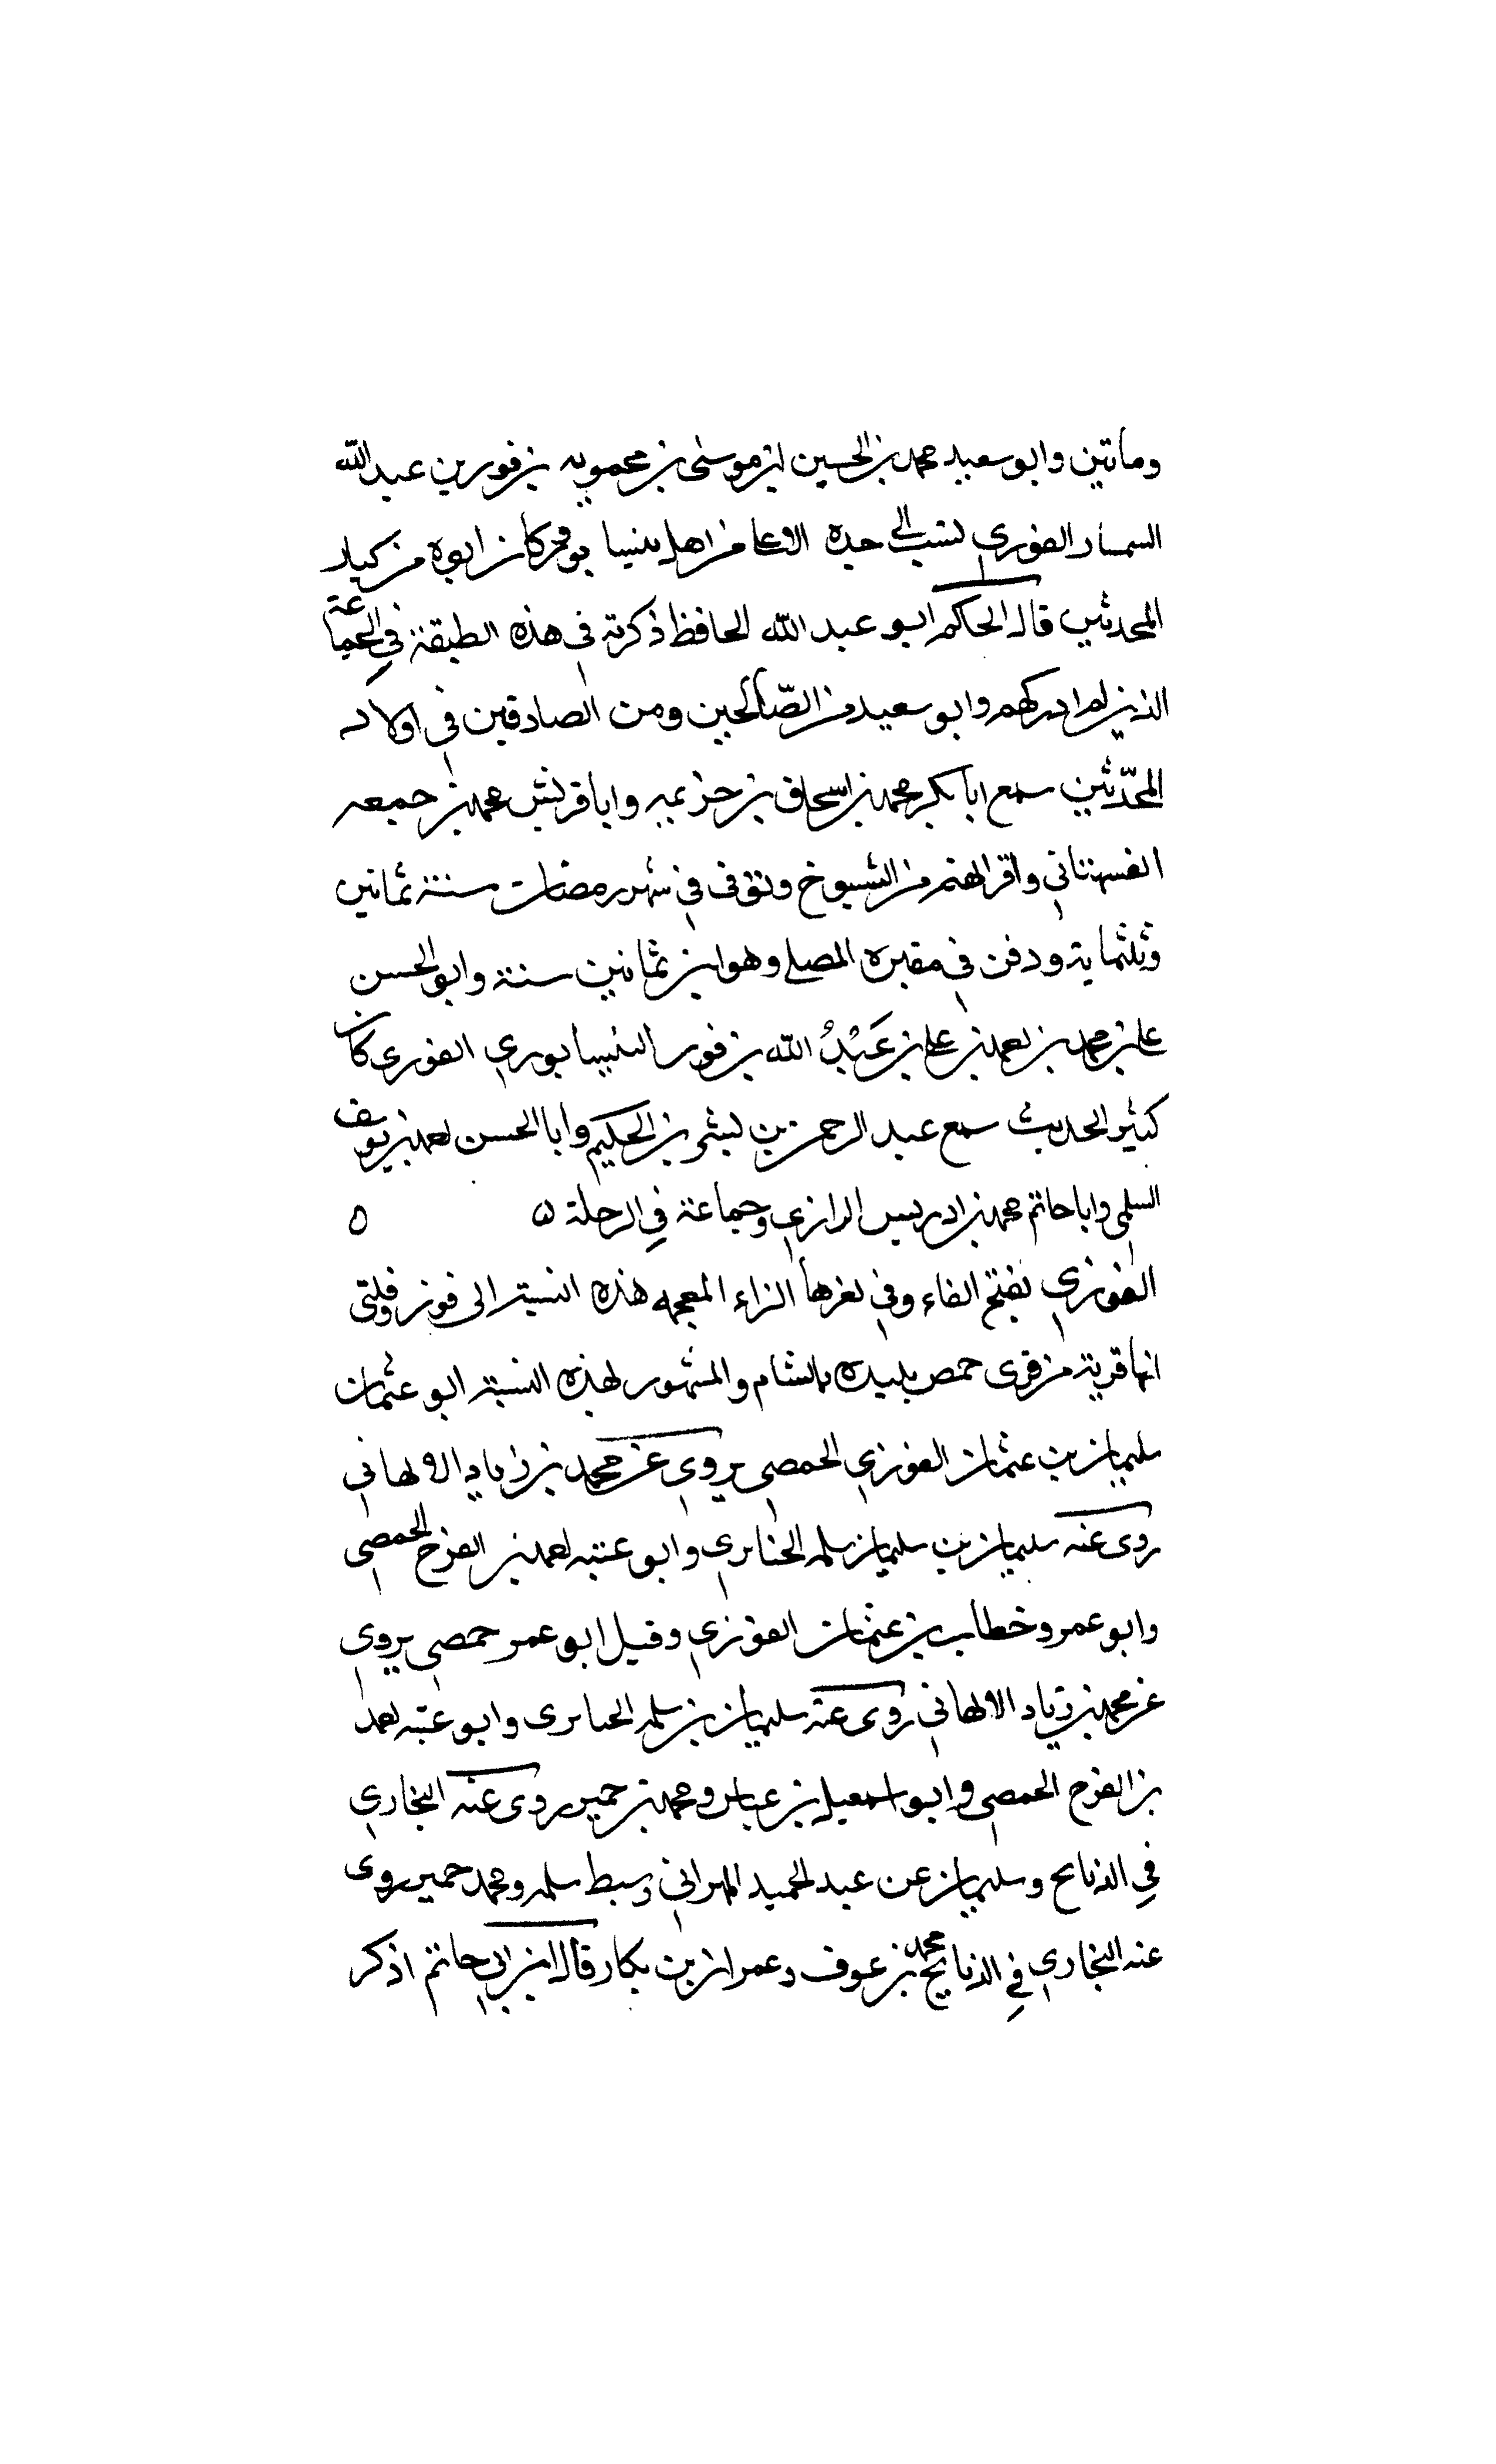 ومائتين وابو سعيد محمد بن الحسين بن موسى بن محمويه بن فور بن عبد الله
السمسار الفوري نسب الى جده الاعلى من اهل نيسابور كان ابوه من كبار
المحدثين قال الحاكم ابو عبد الله الحافظ ذكرته في هذه الطبقة في الجماعة
الذين لم ادركهم وابو سعيد من الصّالحين ومن الصادقين في اولاد
المحدّثين سمع ابا بكر محمد بن اسحاق بن خزيمه وابا قريش محمد بن جمعه
القهستاني واقرانهم من الشيوخ وتوفى في شهر رمضان سنة ثمانين
وثلثماية ودفن في مقبره المصلى وهو ابن ثمانين سنة وابو الحسن
على بن محمد بن احمد بن على بن عَبْدُ الله بن فور النيسابوري الفوري كان
كثير الحديث سمع عبد الرحمن بن بشر بن الحكيم وابا الحسن احمد بن يوسف
السلمي وابا حاتم محمد بن ادريس الرازي وجماعة في الرحلة ٥ ٥
الفوزي بفتح الفاء وفي اخرها الزاء المعجمه هذه النسبة الى فوز وظني
انها قرية من قرى حمص بليده بالشام والمشهور بهذه النسبة ابو عثمان
سليمان بن عثمان الفوزي الحمصي يروي عن محمد بن زياد الالهاني
روى عنه سليمان بن سليمان سلمه الخنايري وابو عتبه احمد بن الفرج الحمصي
وابو عمرو خطاب بن عثمان الفوزي وقيل ابو عمر حمصي يروي
عن محمد بن زياد الالهاني روى عنه سليمان بن سلمه الخبايرى وابو عتبه احمد
بن الفرج الحمصي وابو اسمعيل بن عياس ومحمد بن حمير روى عنه البخاري
في الذبايح وسليمان عن عبد الحميد المهراني وسبط سلمه ومحمد حمير روى
عنه البخاري في الذبايح محمد بن عوف وعمران بن بكار قال ابن ابي حاتم اذكر